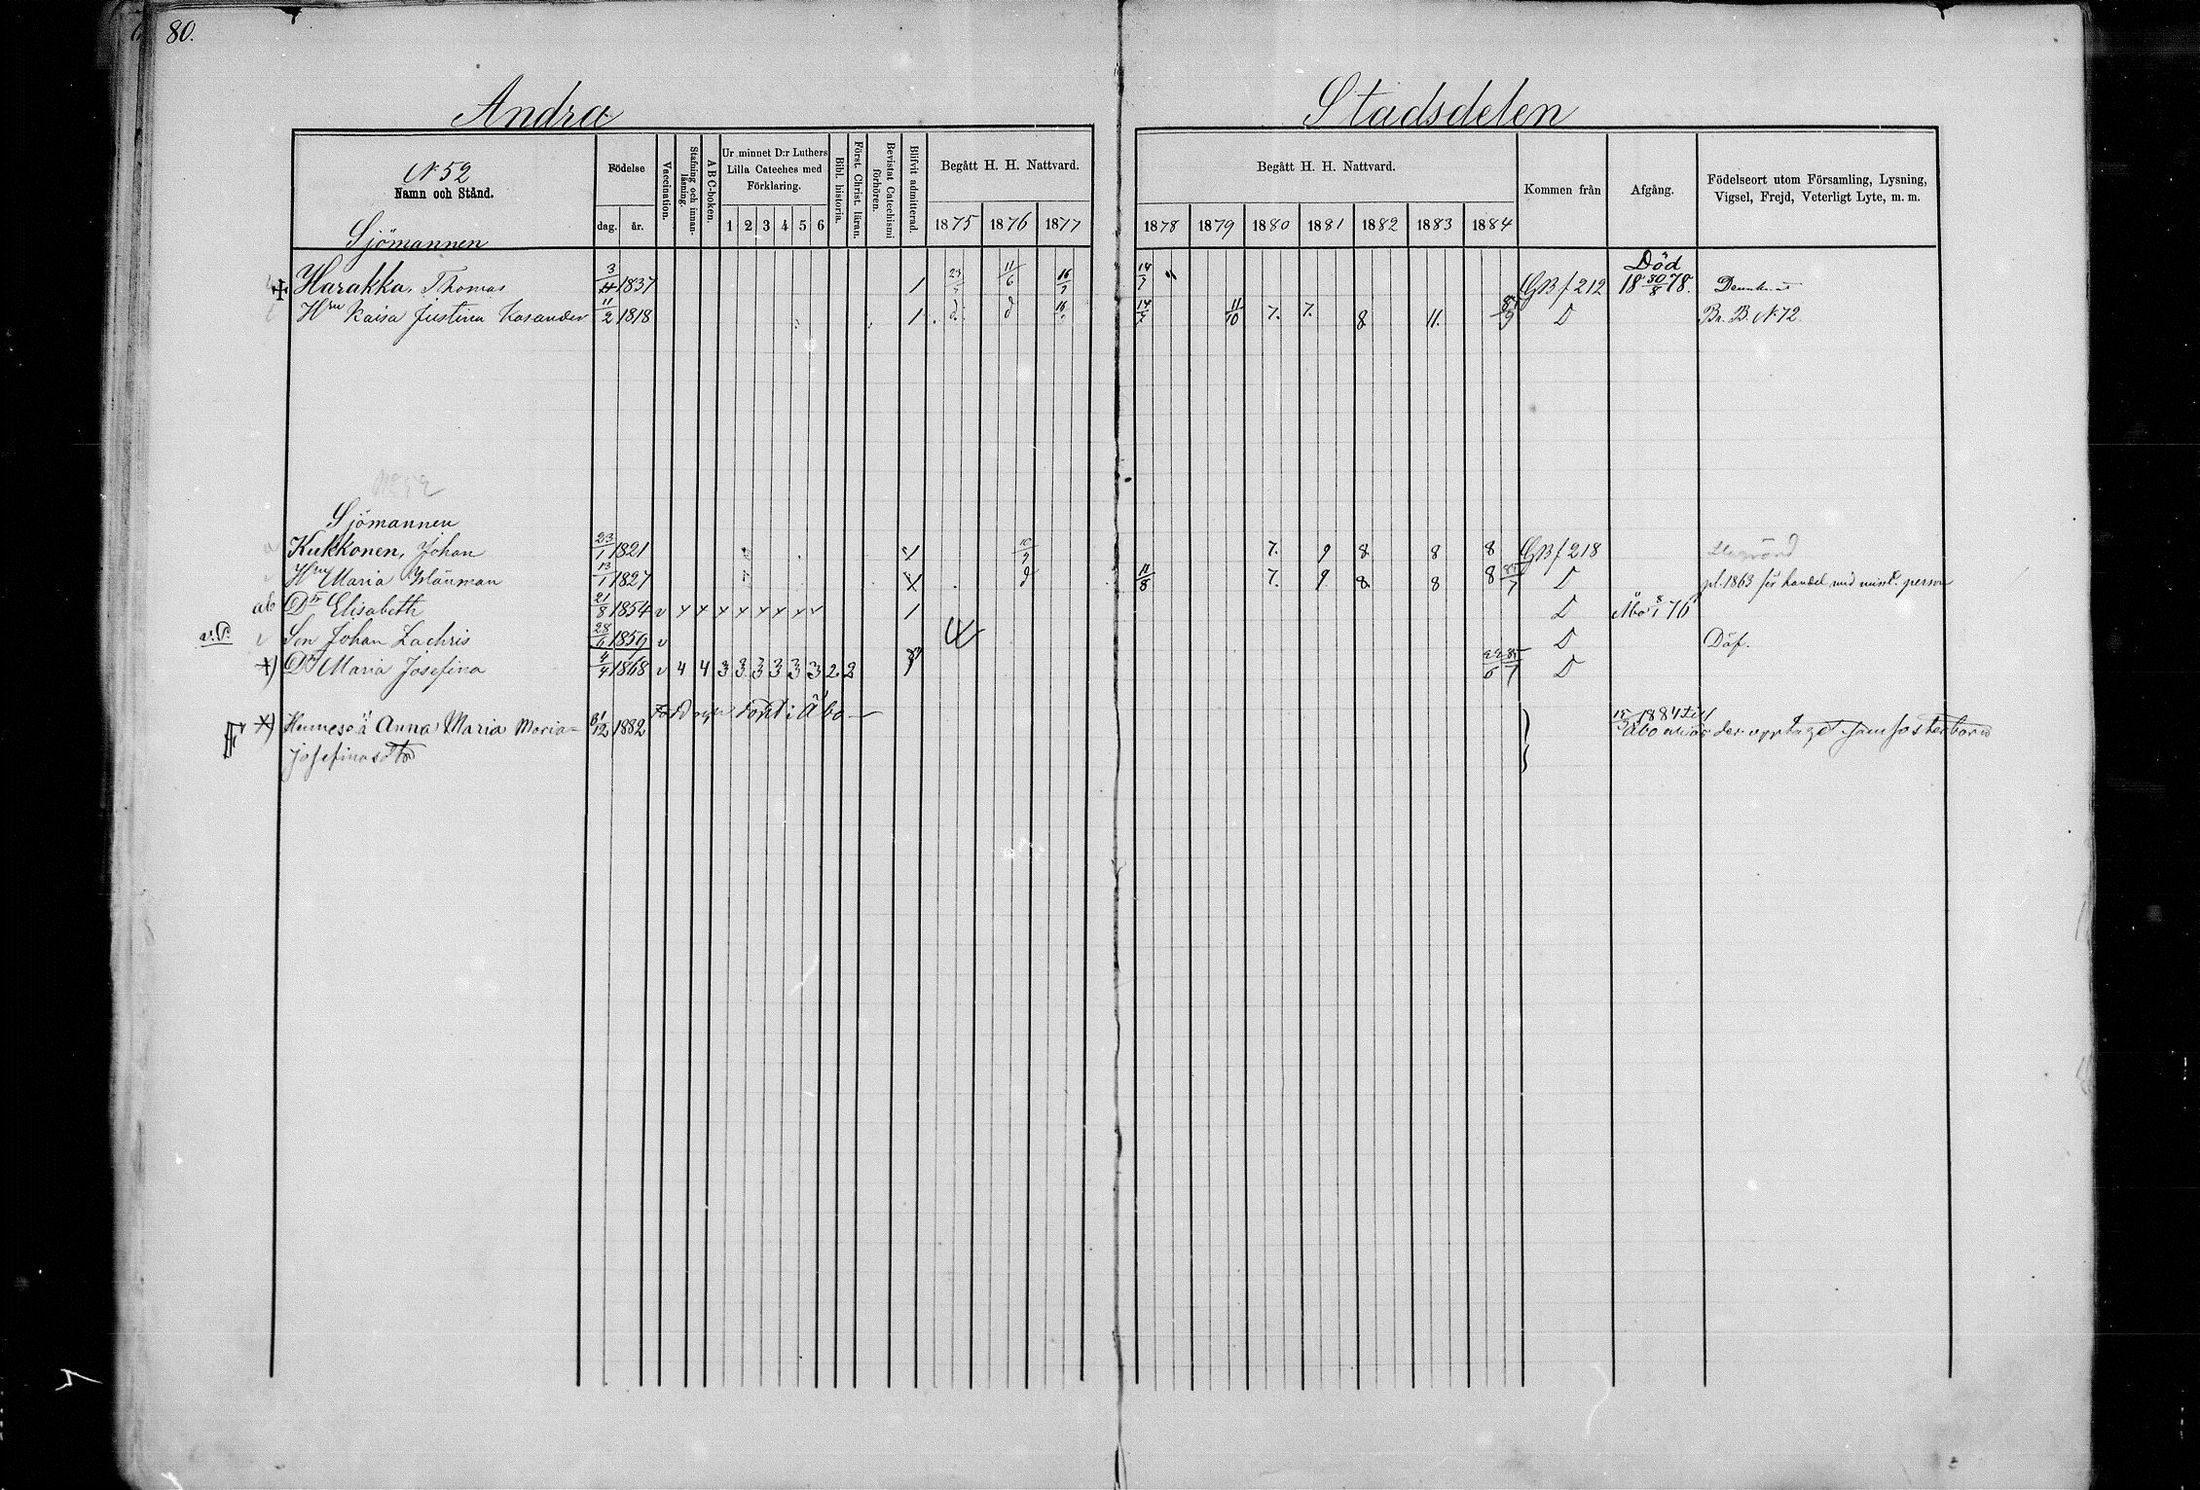 80.
Andra Stadsdelen
N 52
Namn och Stånd.
Födelse
dag. år.
Vaccination.
Stafning och innan-läsning.
A B C-boken.
Ur minnet D:r Luthers
Lilla Cateches med
Förklaring.
1 2 3 4 5 6
Bibl. historia.
Först. Christ. läran.
Bevistat Catechismi förhören.
Blifvit admitterad.
Begått H. H. Nattvard.
1875 1876 1877
Begått H. H. Nattvard.
1878 1879 1880 1881 1882 1883 1884
Kommen från
Afgång.
Födelseort utom Församling, Lysning,
Vigsel, Frejd, Veterligt Lyte, m. m.
Sjömannen
Död
Harakka, Thomas 3/11 1837 1 11/6 16/7 14/7 " GB f 212 18 30/8 78.
Hru Kaisa Justina Kasander 11/2 1818 1 d 14/7 11/10 7. 7. 8 11. D Br. B. N 72
No 52
Sjömannen
Kukkonen, Johan 23/1 1821 1 7. 9 8 8 8 GB f 218
Hru Maria 13/1 1827 d 11/8 7. 9. 8 8 8 D pl. 1863 för handel med person
ab Dr Elisabeth 21/8 1854 v 1 D Åbo 76
v.P. Son Johan Zachris 28/6 1859 v D Döf.
Dr Maria Josefina 4/4 1868 v 4 4 3 3 3 3 3 3 2 2 D
Hennes oä Anna Maria Maria= 31/12 1882 Född och döpt i Åbo 1884 till
Åbo der upptaget som fosterbarn
Josefinasdtr